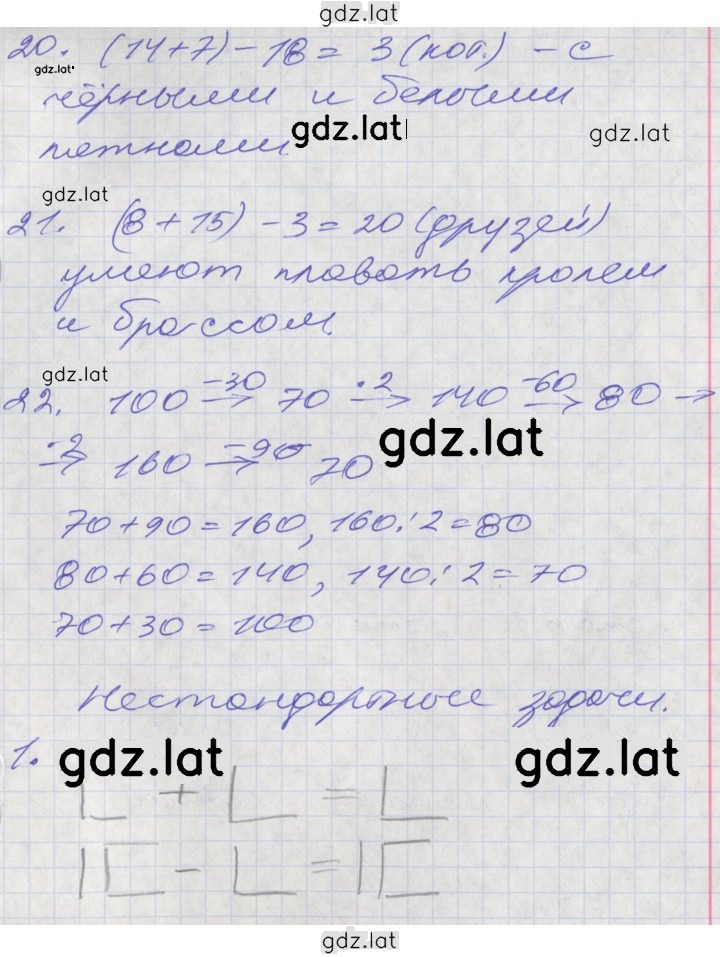 gdz.lat
20. (14+7)-18= 3(кот.) - с
gdz.lat
чёрными и белыми
gdz.lat
gdz.lat
пятнами.
gdz.lat
21. (8+15)-3=20(друзей)
умеют плавать кролем
и брассом.
gdz.lat
22. 100 -30→ 70 ·2→ 140 -60→ 80 →
·2→ 160 -90→ 70
gdz.lat
70+90=160, 160:2=80
80+60=140, 140:2=70
70+30=100
Нестандартные задачи.
1.
gdz.lat
gdz.lat
L + L = L
IC - L = IC
gdz.lat